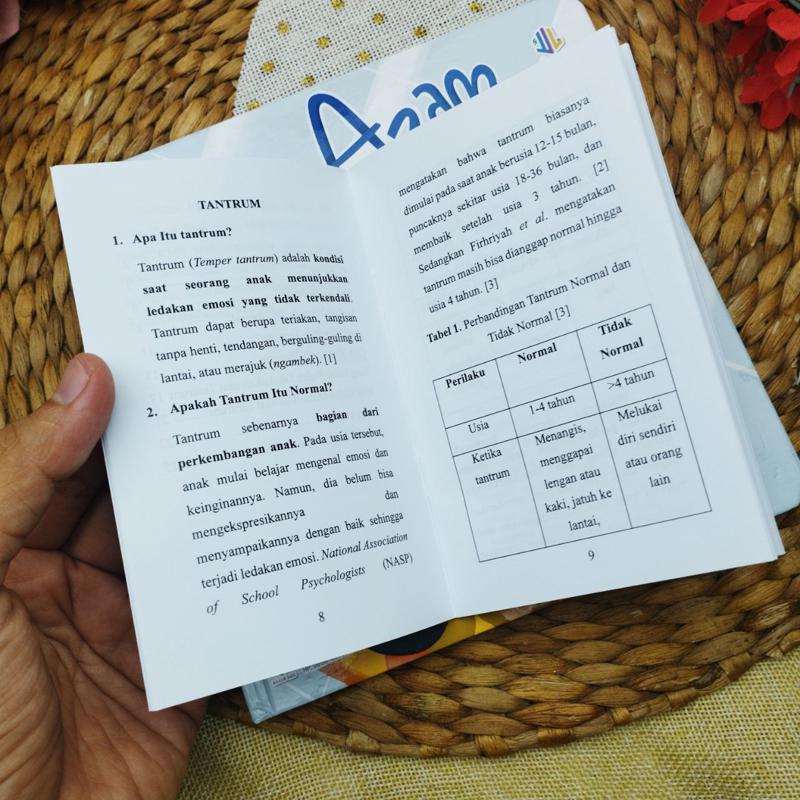 Azam
TANTRUM
1. Apa Itu tantrum?
Tantrum (Temper tantrum) adalah kondisi
saat seorang anak menunjukkan
ledakan emosi yang tidak terkendali.
Tantrum dapat berupa teriakan, tangisan
tanpa henti, tendangan, berguling-guling di
lantai, atau merajuk (ngambek). [1]
2. Apakah Tantrum Itu Normal?
Tantrum sebenarnya bagian dari
perkembangan anak. Pada usia tersebut,
anak mulai belajar mengenal emosi dan
keinginannya. Namun, dia belum bisa
mengekspresikannya dan
menyampaikannya dengan baik sehingga
terjadi ledakan emosi. National Association
of School Psychologists (NASP)
8
mengatakan bahwa tantrum biasanya
dimulai pada saat anak berusia 12-15 bulan,
puncaknya sekitar usia 18-36 bulan, dan
membaik setelah usia 3 tahun. [2]
Sedangkan Firhriyah et al. mengatakan
tantrum masih bisa dianggap normal hingga
usia 4 tahun. [3]
Tabel 1. Perbandingan Tantrum Normal dan
Tidak Normal [3]
Perilaku Normal Tidak
Normal
Usia 1-4 tahun >4 tahun
Ketika Menangis, Melukai
tantrum menggapai diri sendiri
lengan atau atau orang
kaki, jatuh ke lain
lantai,
9